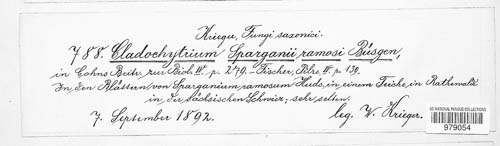 Krieger, Fungi saxonici.
788. Cladochytrium Sparganii ramosi Büsgen,
in Cohns Beitr. zur Biol. IV. p. 279. Fischer, Pilze IV. p. 139.
In den Blättern von Sparganium ramosum Huds. in einem Teiche in Rathewald
in der sächsischen Schweiz; sehr selten.
7. September 1892.
leg. W. Krieger.
US NATIONAL FUNGUS COLLECTIONS
979054